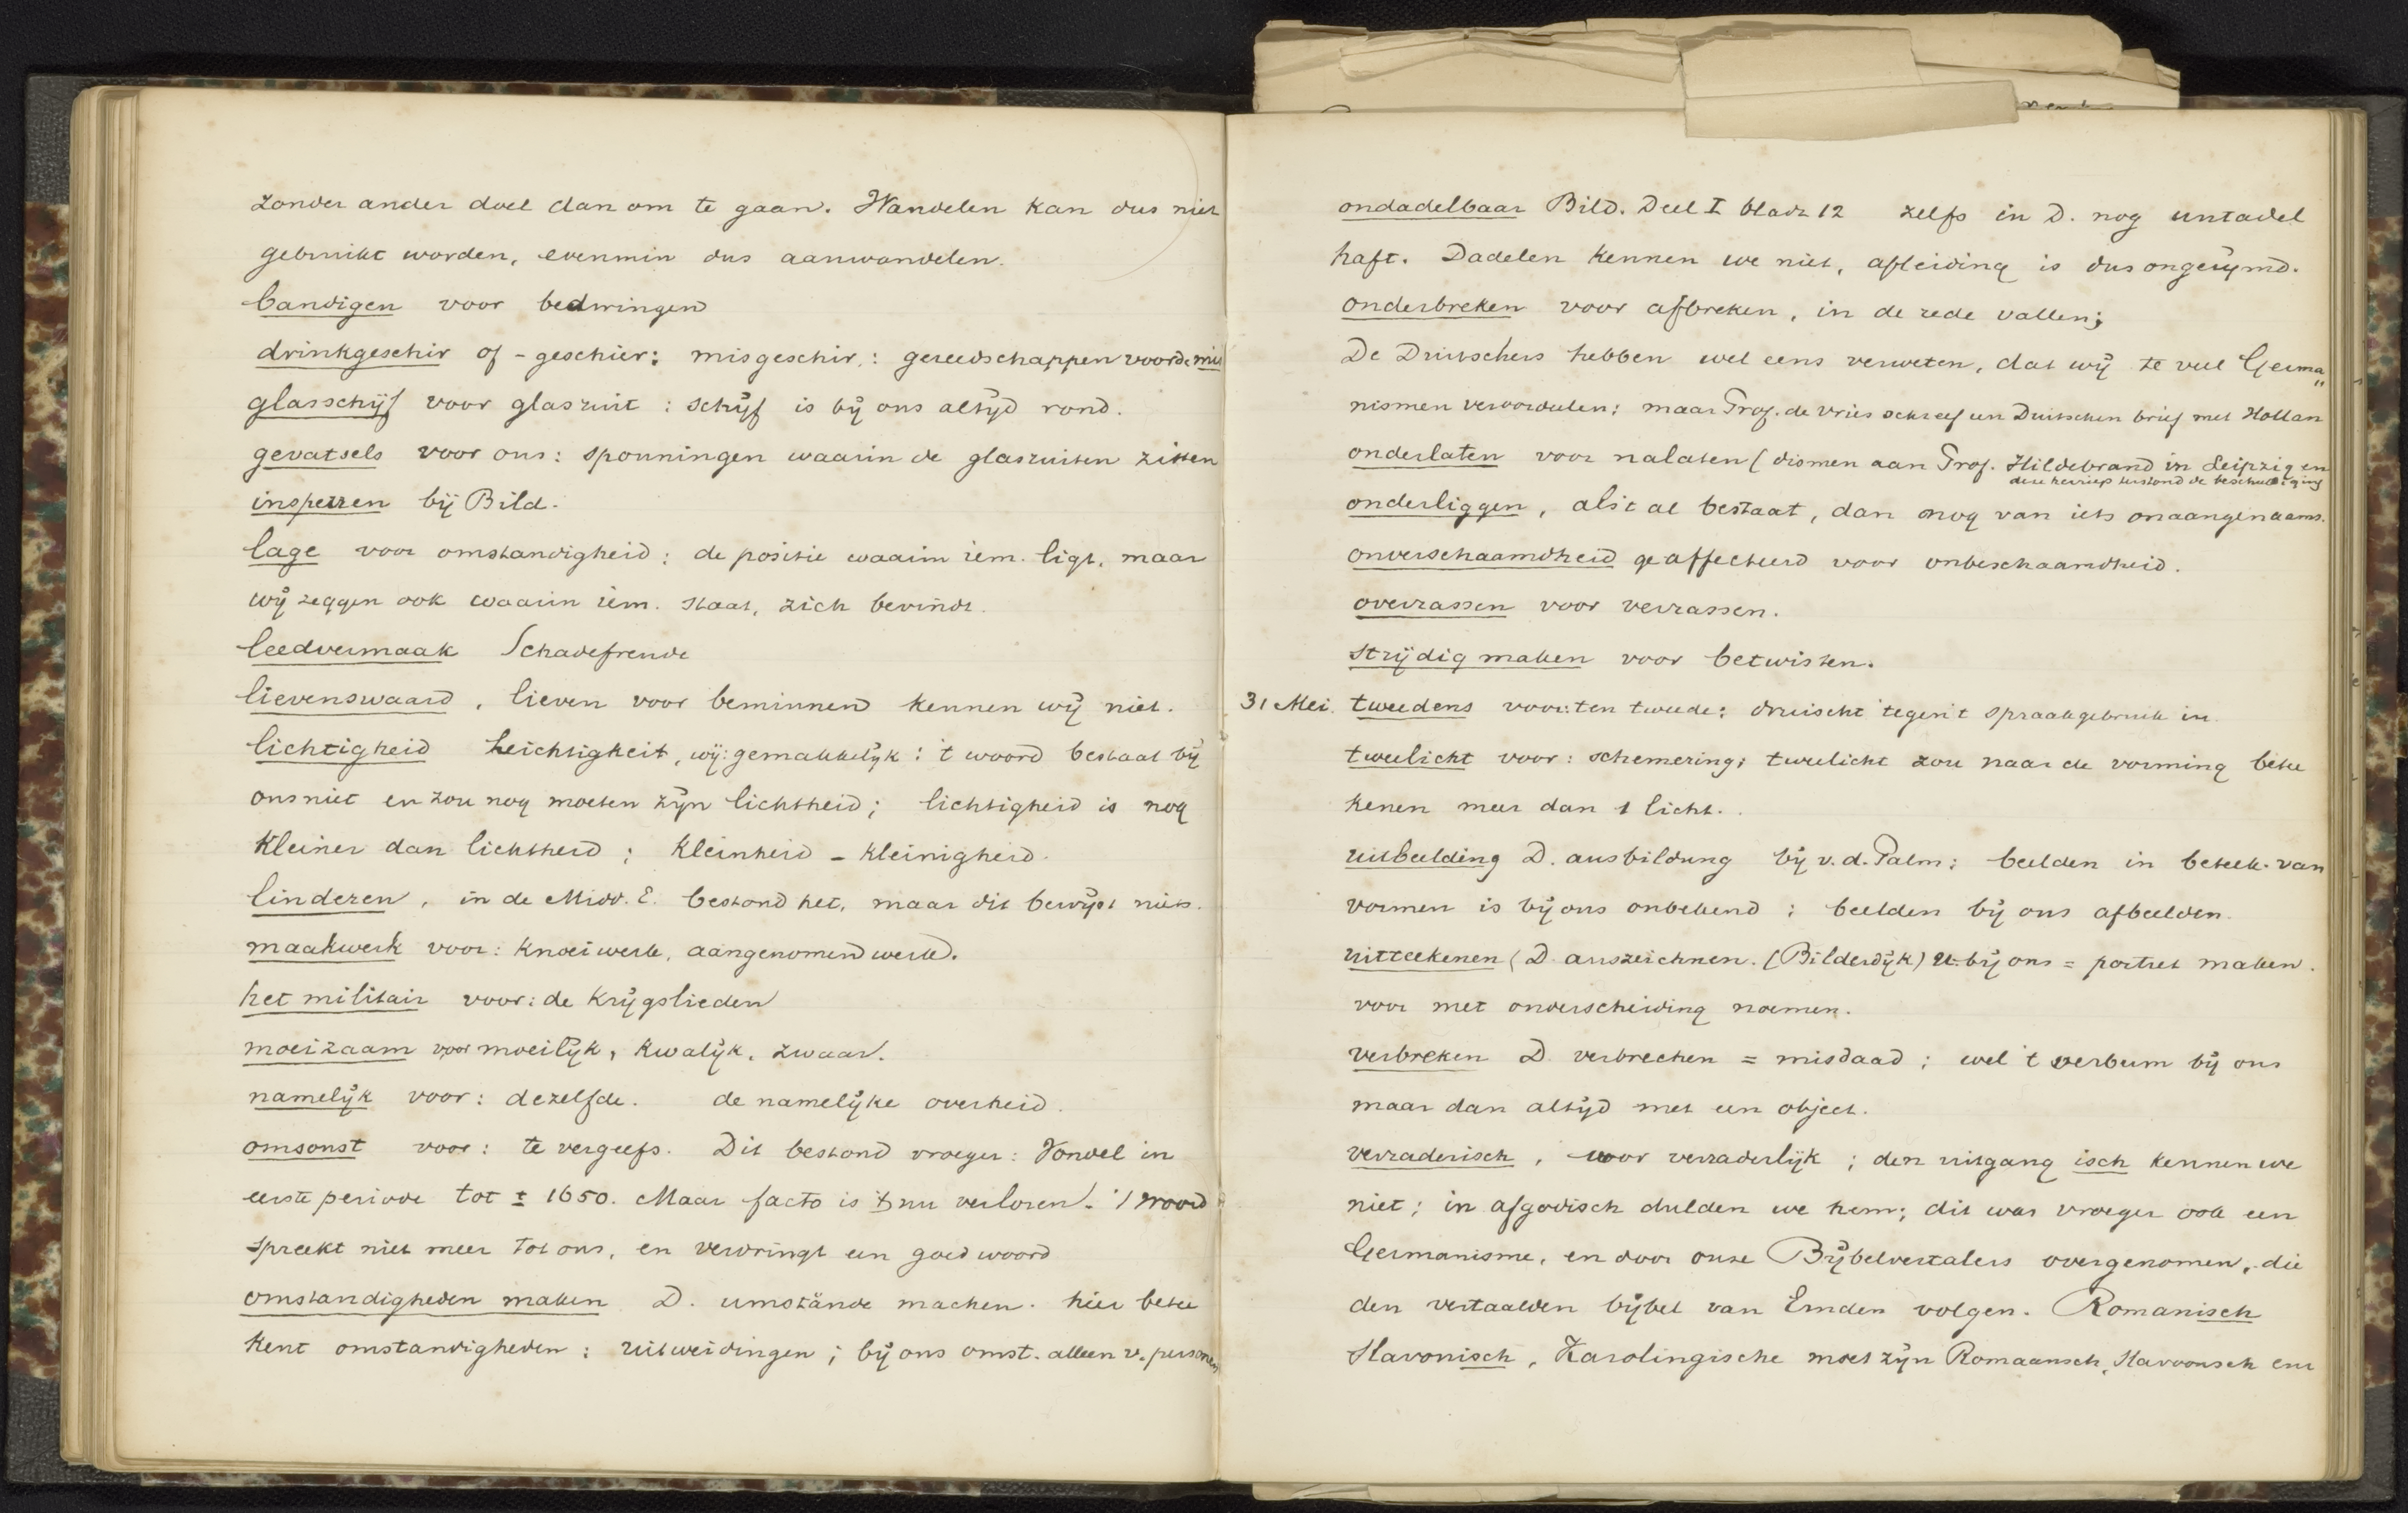 zonder ander doel dan om te gaan. Wandelen kan dus niet
gebruikt worden, evenmin dus aanwandelen.
bandigen voor bedwingen
drinkgeschir of - geschier: misgeschir,: gereedschappen voor de mis
glasschijf voor glasruit : schijf is bij ons altijd rond.
gevatsels voor ons: sponningen waarin de glasruiten zitten
insperren bij Bild.
lage voor omstandigheid : de positie waarin iem. ligt, maar
wij zeggen ook waarin iem. staat, zich bevindt.
leedvermaak Schadefreude
lievenswaard, lieven voor beminnen kennen wij niet.
lichtigheid Leichtigkeit, wij: gemakkelijk : 't woord bestaat bij
ons niet en zou nog moeten zijn lichtheid ; lichtigheid is nog
kleiner dan lichtheid ; kleinheid - kleinigheid.
linderen, in de Midd. E. bestond het, maar dit bewijst niets.
maakwerk voor: knoeiwerk, aangenomen werk.
het militair voor: de krijgslieden
moeizaam voor moeilijk, kwalijk, zwaar.
namelijk voor: dezelfde. de namelijke overheid.
omsonst voor: te vergeefs. Dit bestond vroeger: Vondel in
eerste periode tot ± 1650. Maar facto is 't nu verloren. 't woord
spreekt niet meer tot ons, en verdringt een goed woord
omstandigheden maken D. umstände machen. hier betee
kent omstandigheden : uitweidingen ; bij ons omst. alleen v. personen
ondadelbaar Bild. Deel I bladz 12 zelfs in D. nog untadel
haft. Dadelen kennen we niet, afleiding is dus ongerijmd.
onderbreken voor afbreken, in de rede vallen;
De Duitschers hebben wel eens verweten, dat wij te veel Germa„
nismen veroordeelen; maar Prof. de Vries schreef een Duitschen brief met Hollan
onderlaten voor nalaten (dismen aan Prof. Hildebrand in Leipzig en
deze herriep terstond de beschuldiging
onderliggen, als 't al bestaat, dan nog van iets onaangenaams.
onverschaamdheid geaffecteerd voor onbeschaamdheid.
overrassen voor verrassen.
strijdig maken voor betwisten.
31 Mei. tweedens voor: ten tweede: druischt tegen 't spraakgebruik in.
tweelicht voor: schemering; tweelicht zou naar de vorming betee
kenen meer dan 1 licht.
uitbeelding D. ausbildung bij v. d. Palm: beelden in beteek. van
vormen is bij ons onbekend ; beelden bij ons afbeelden.
uitteekenen (D auszeichnen. (Bilderdijk) u. bij ons = portret maken.
voor met onderscheiding noemen.
verbreken D. verbrechen = misdaad ; wel 't verbum bij ons
maar dan altijd met een object.
verraderisch, voor verraderlijk ; den uitgang isch kennen we
niet ; in afgodisch dulden we hem; dit was vroeger ook een
Germanisme, en door onze Bijbelvertalers overgenomen, die
den vertaalden bijbel van Emden volgen. Romanisch
Slavonisch, Karolingische moet zijn Romaansch, Slavoonsch enz